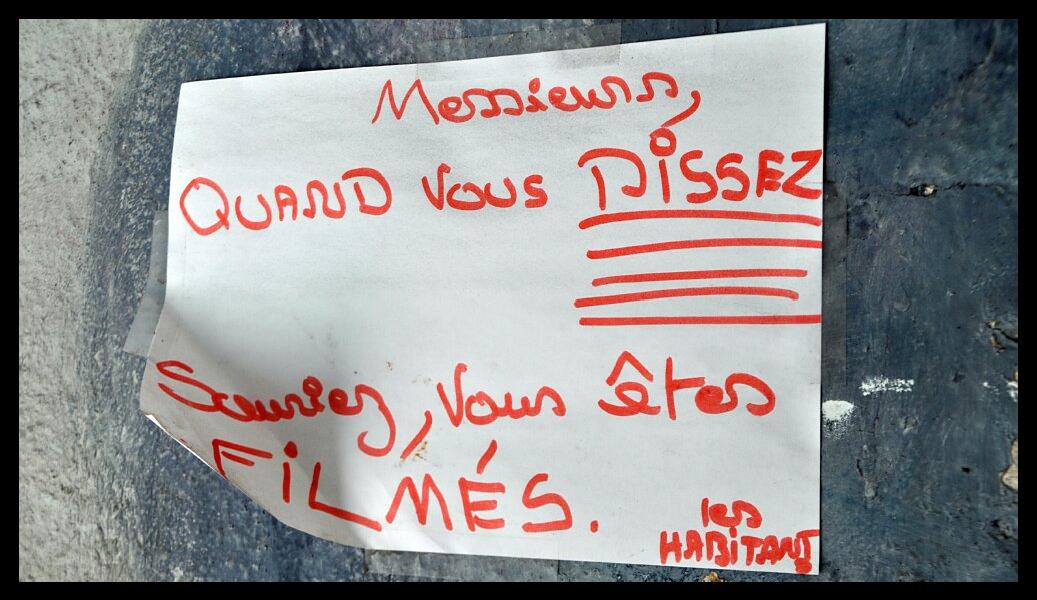 Messieurs,
QUAND VOUS PISSEZ
Souriez, Vous êtes
FiLMÉS.
les
HABiTANTS